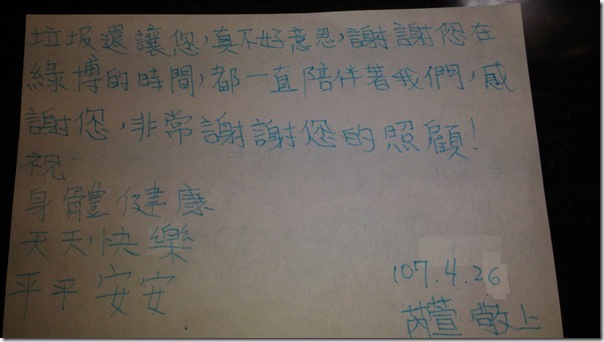 垃圾還讓您,真不好意思,謝謝您在
綠博的時間,都一直陪伴著我們,感
謝您,非常謝謝您的照顧!
祝
身體健康
天天快樂
平平安安.
107.4.26
芮萱 敬上